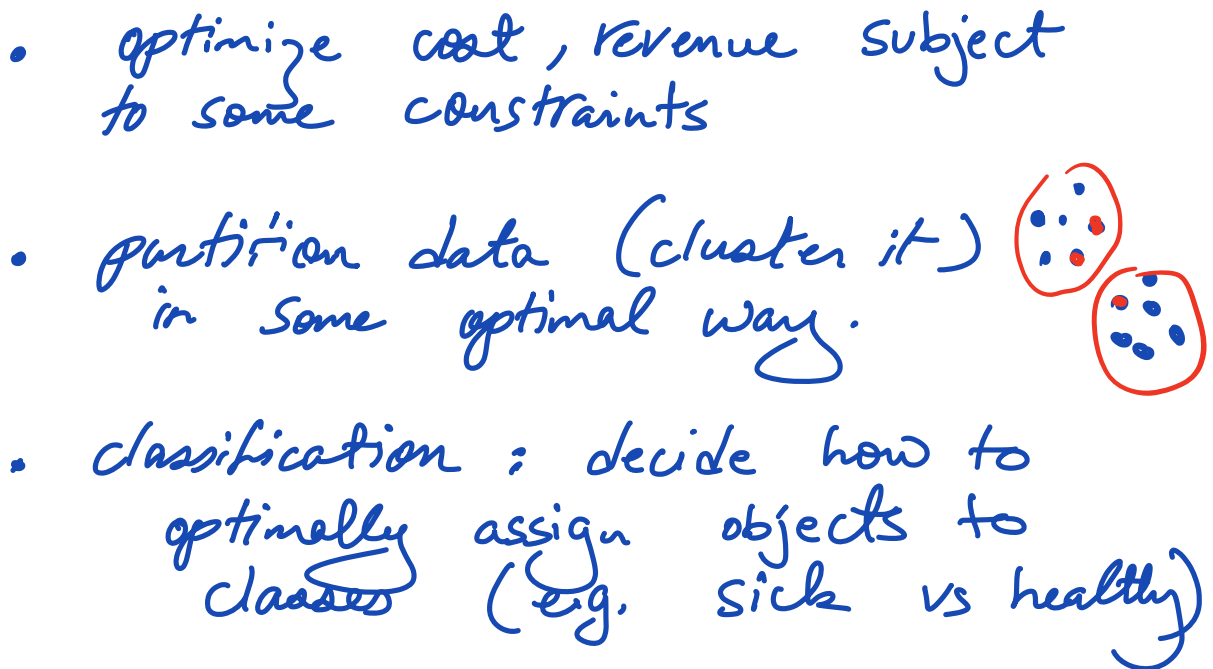 • optimize cost, revenue subject
to some constraints
• partition data (cluster it)
in some optimal way.
• classification : decide how to
optimally assign objects to
classes (e.g. sick vs healthy)